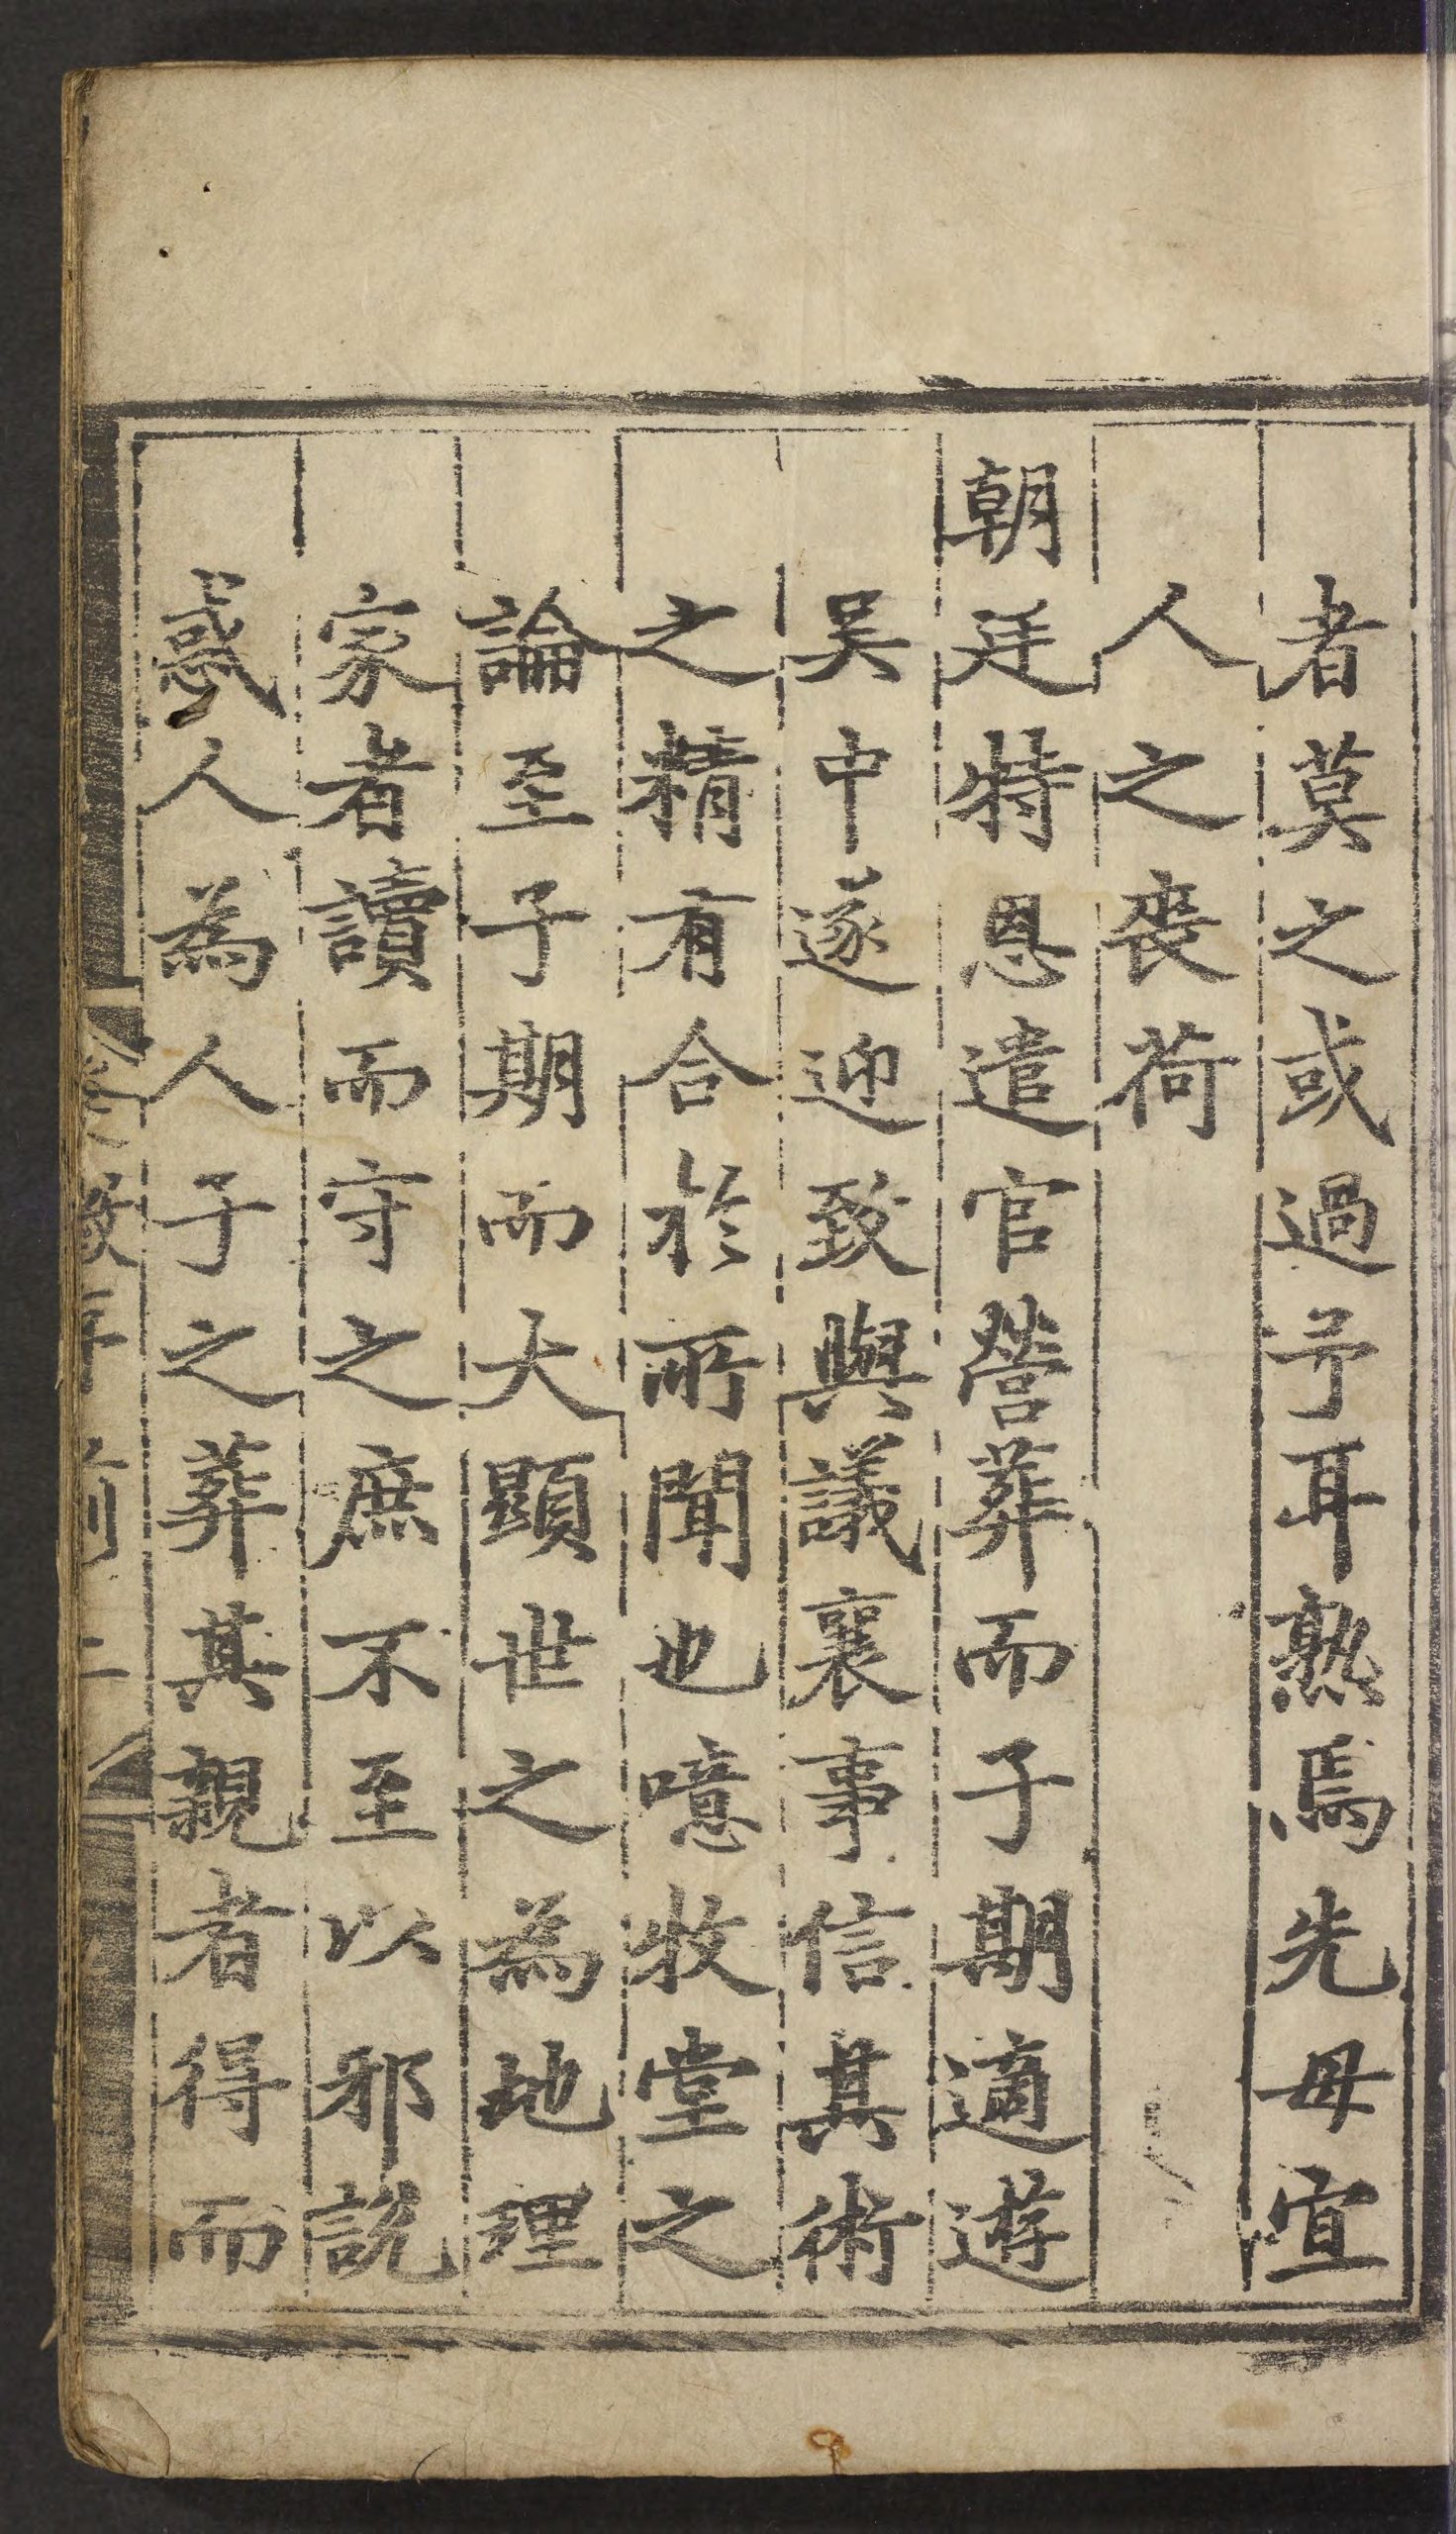 者莫之或過予耳熟焉先母宣
人之喪荷
朝廷特恩遣官營葬而子期適遊
吳中遂迎致與議襄事信其術
之精有合於所聞也噫牧堂之
論至子期而大顯世之為地理
家者讀而守之庶不至以邪說
惑人為人子之葬其親者得而
序 前 二